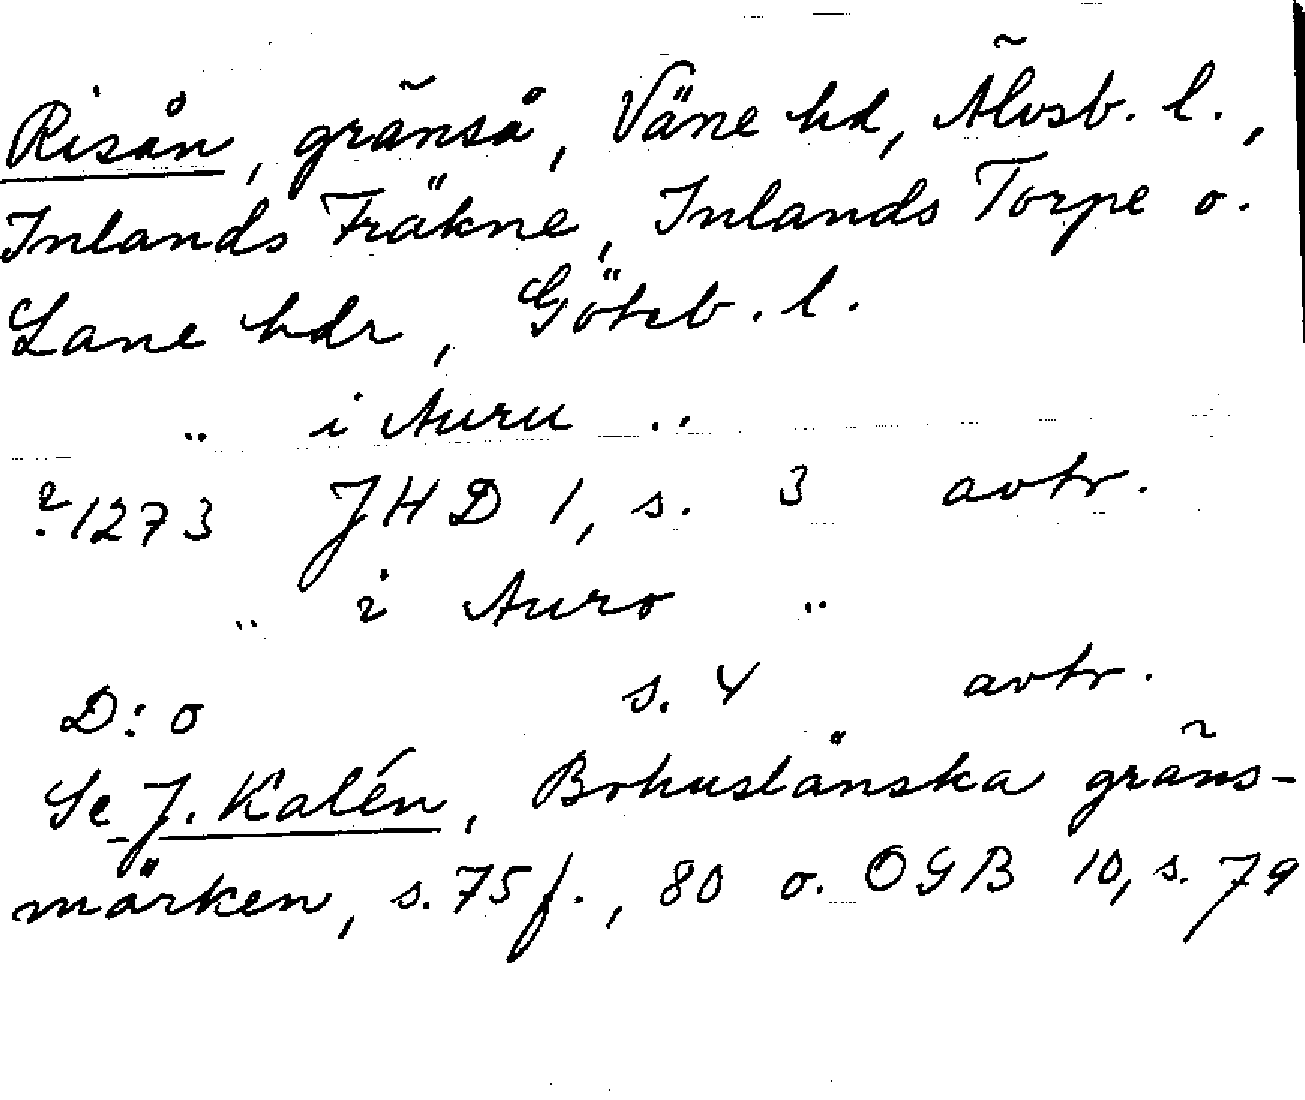 Risån, gränså, Väne hd, Älvsb. l.,
Inlands Fräkne, Inlands Torpe o.
Lane hdr, Göteb. l.
" i Auru "
?1273 JHD 1, s. 3 avtr.
" i Auro "
D:o s. 4 avtr.
Se J. Kalén, Bohuslänska gräns-
märken, s. 75 f., 80 o. OGB 10, s. 79